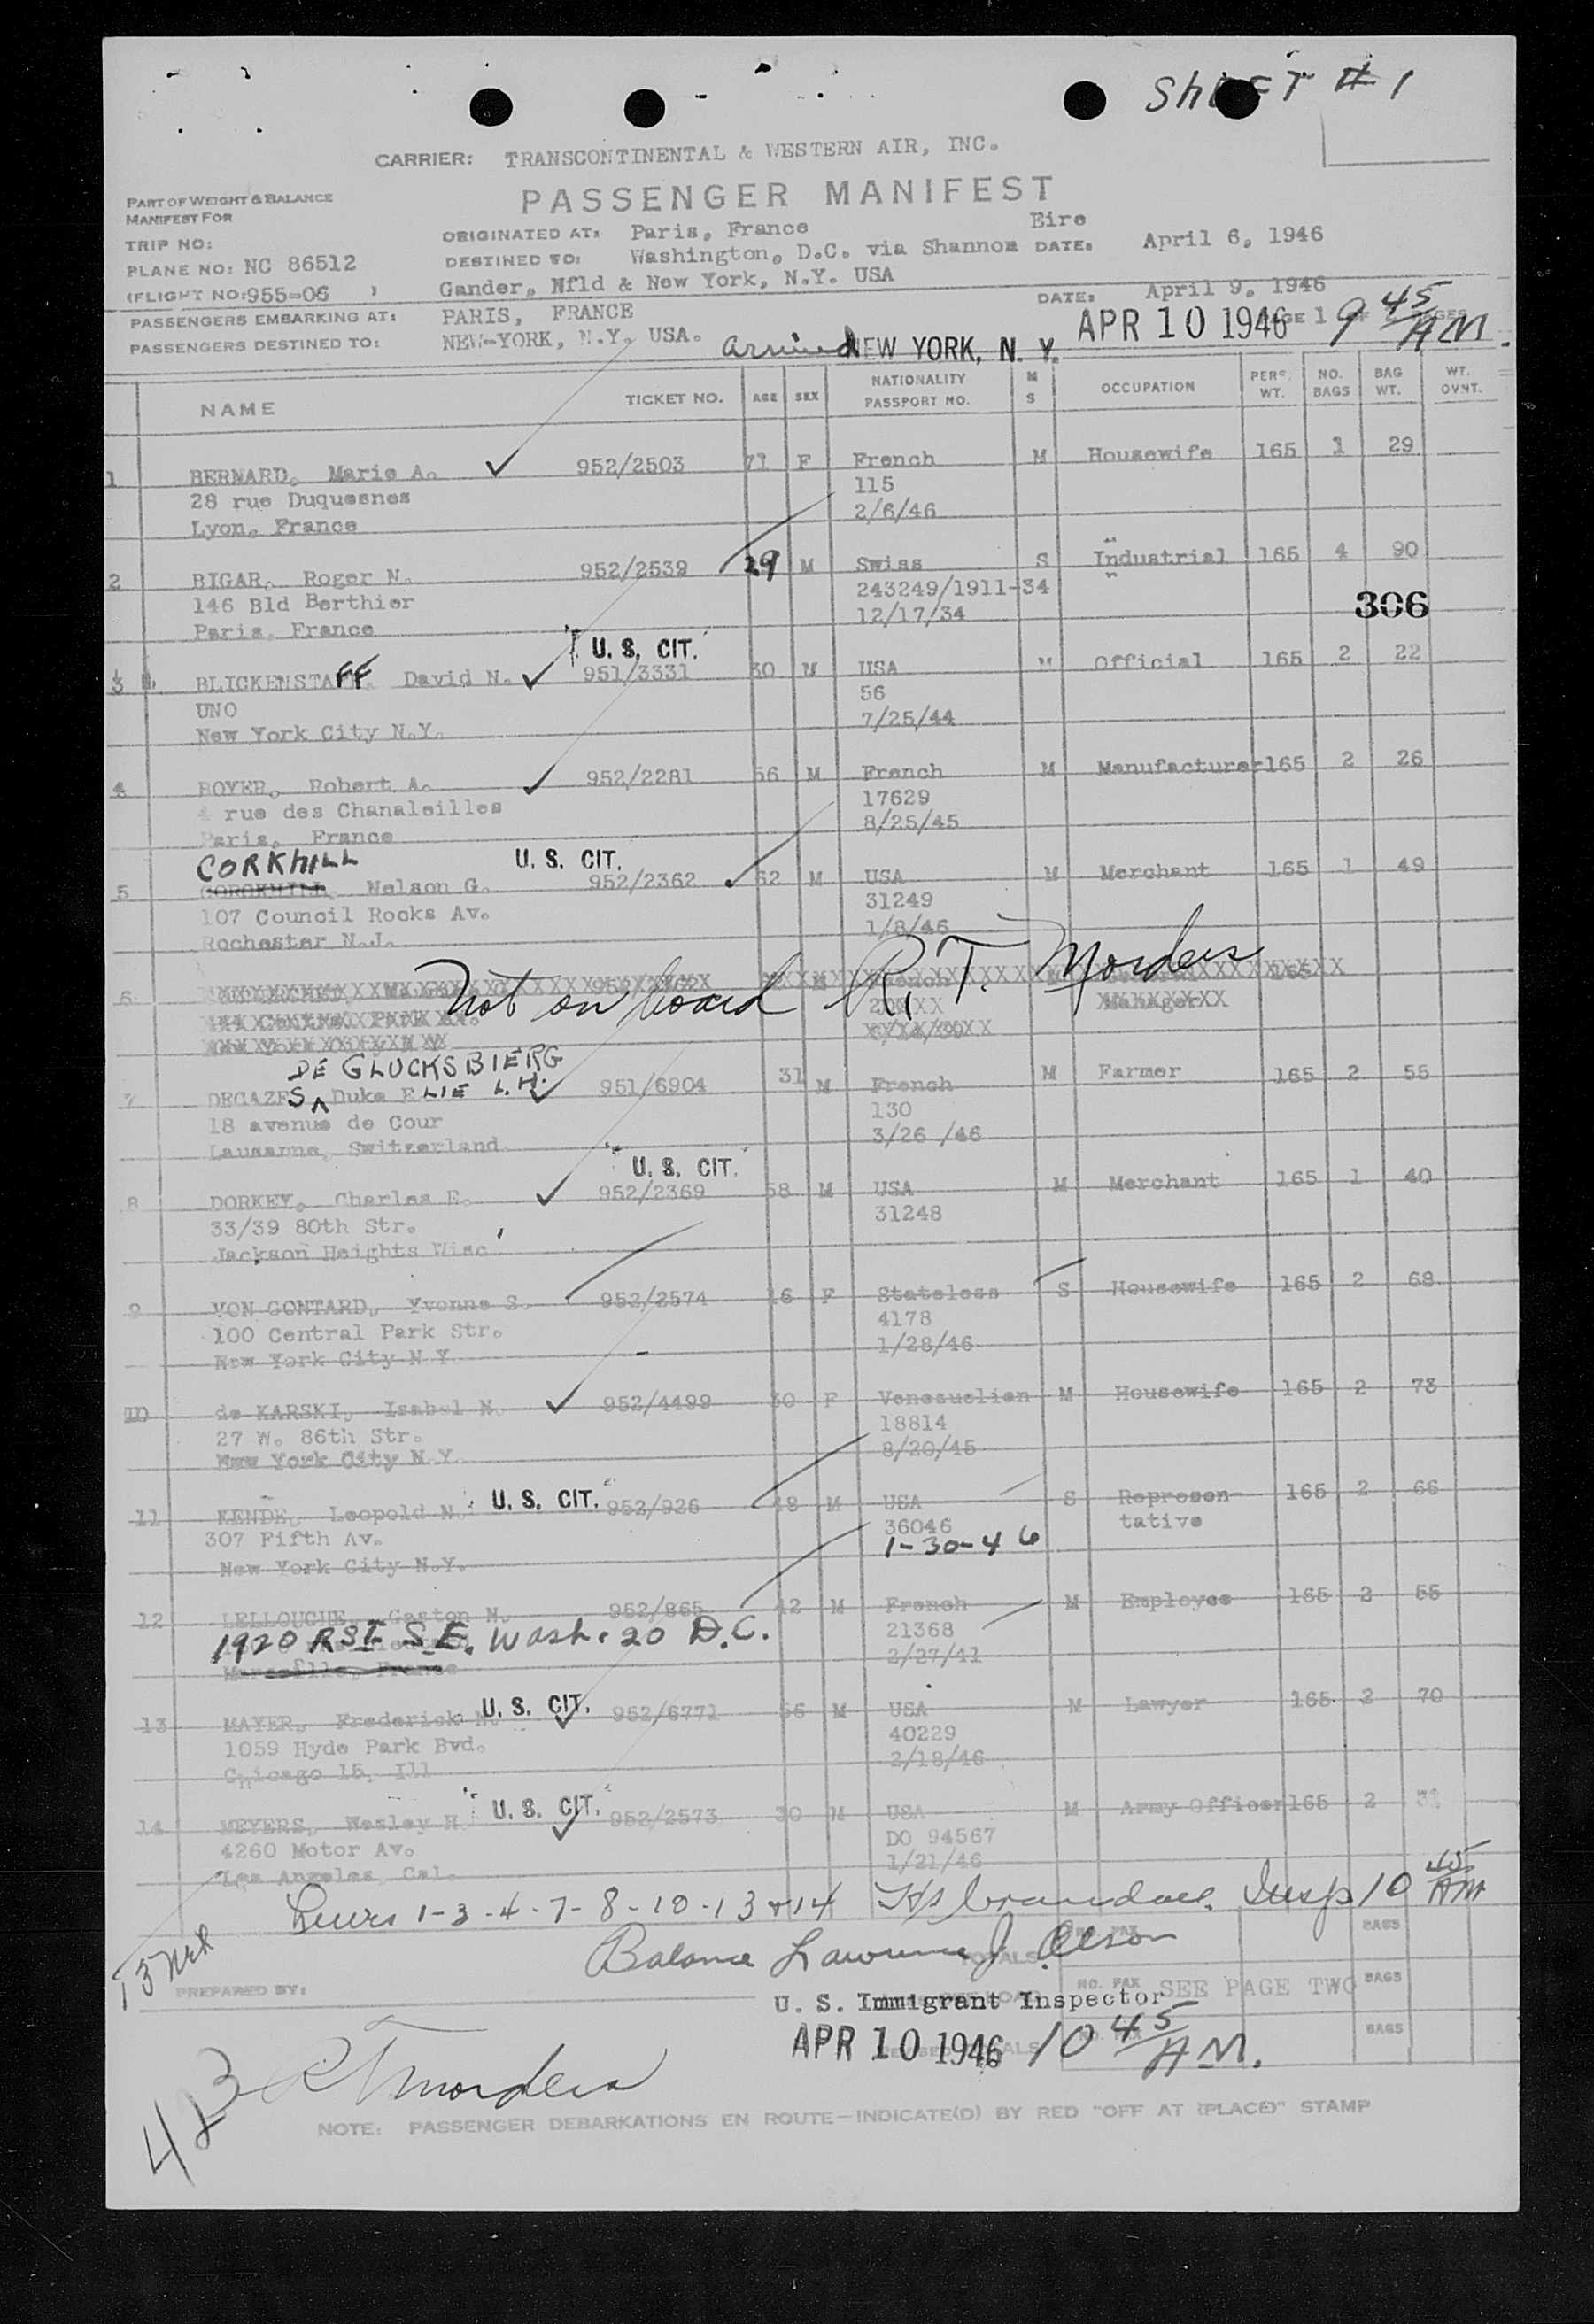 SHEET # 1
CARRIER: TRANSCONTINENTAL & WESTERN AIR, INC.
PASSENGER MANIFEST
PART OF WEIGHT & BALANCE
MANIFEST FOR
TRIP NO:
PLANE NO: NC 86512
(FLIGHT NO: 955-06 )
ORIGINATED AT: Paris, France Eire
DESTINED TO: Washington, D.C. via Shannon DATE: April 6, 1946
Gander, Nfld & New York, N.Y. USA
DATE: April 9, 1946
PASSENGERS EMBARKING AT: PARIS, FRANCE
PASSENGERS DESTINED TO: NEW-YORK, N.Y. USA.
arrived NEW YORK, N. Y. APR 10 1946 9 45 AM.
NAME TICKET NO. AGE SEX NATIONALITY PASSPORT NO. M S OCCUPATION PERS. WT. NO. BAGS BAG WT. WT. OVNT.
1 BERNARD, Marie A. 952/2503 71 F French M Housewife 165 1 29
28 rue Duquesnes 115
Lyon, France 2/6/46
2 BIGAR, Roger N. 952/2539 29 M Swiss S "Industrial" 165 4 90
146 Bld Berthier 243249/1911-34
Paris, France 12/17/34
306
U. S. CIT.
3 BLICKENSTAFF, David N. 951/3331 30 M USA M Official 165 2 22
UNO 56
New York City N.Y. 7/25/44
4 BOYER, Robert A. 952/2281 56 M French M Manufacturer 165 2 26
4 rue des Chanaleilles 17629
Paris, France 8/25/45
CORKHILL U. S. CIT.
5 CORCKHILL, Nelson G. 952/2362 62 M USA M Merchant 165 1 49
107 Council Rocks Av. 31249
Rochester N.J. 1/8/46
6 Not on board R. T. Morders
DE GLUCKSBIERG
7 DECAZES, Duke ELIE L.H. 951/6904 31 M French M Farmer 165 2 55
18 avenue de Cour 130
Lausanne, Switzerland 3/26 /46
U. S. CIT.
8 DORKEY, Charles E. 952/2369 58 M USA M Merchant 165 1 40
33/39 80th Str. 31248
Jackson Heights Wisc
9 VON GONTARD, Yvonne S. 952/2574 16 F Stateless S Housewife 165 2 68
100 Central Park Str. 4178
New York City N.Y. 1/28/46
10 de KARSKI, Isabel M. 952/4499 30 F Venezuelien M Housewife 165 2 73
27 W. 86th Str. 18814
New York City N.Y. 8/20/45
11 KENDE, Leopold N. U. S. CIT. 952/926 48 M USA S Represen- 165 2 66
307 Fifth Av. 36046 tative
1-30-46
New York City N.Y.
12 LELLOUCHE, Gaston M. 952/865 42 M French M Employee 165 2 55
1920 R St. S.E. Wash. 20 D.C. 21368
Marseille, France 2/27/41
13 MAYER, Frederick M. U. S. CIT. 952/6771 56 M USA M Lawyer 165 2 70
1059 Hyde Park Bvd. 40229
Chicago 15, Ill 2/18/46
14 MEYERS, Wesley H. U. S. CIT. 952/2573 30 M USA M Army Officer 165 2
4260 Motor Av. DO 94567
Los Angeles, Cal. 1/21/46
1-3-4-7-8-10-13+14 Insp 10 45 AM
BAGS
Balance Lawrence J. Olson
TOTALS
PREPARED BY:
NO. PAX SEE PAGE TWO BAGS
U. S. Immigrant Inspector
BAGS
APR 10 1946 10 45 AM.
R T Morders
NOTE: PASSENGER DEBARKATIONS EN ROUTE—INDICATE(D) BY RED "OFF AT (PLACE)" STAMP